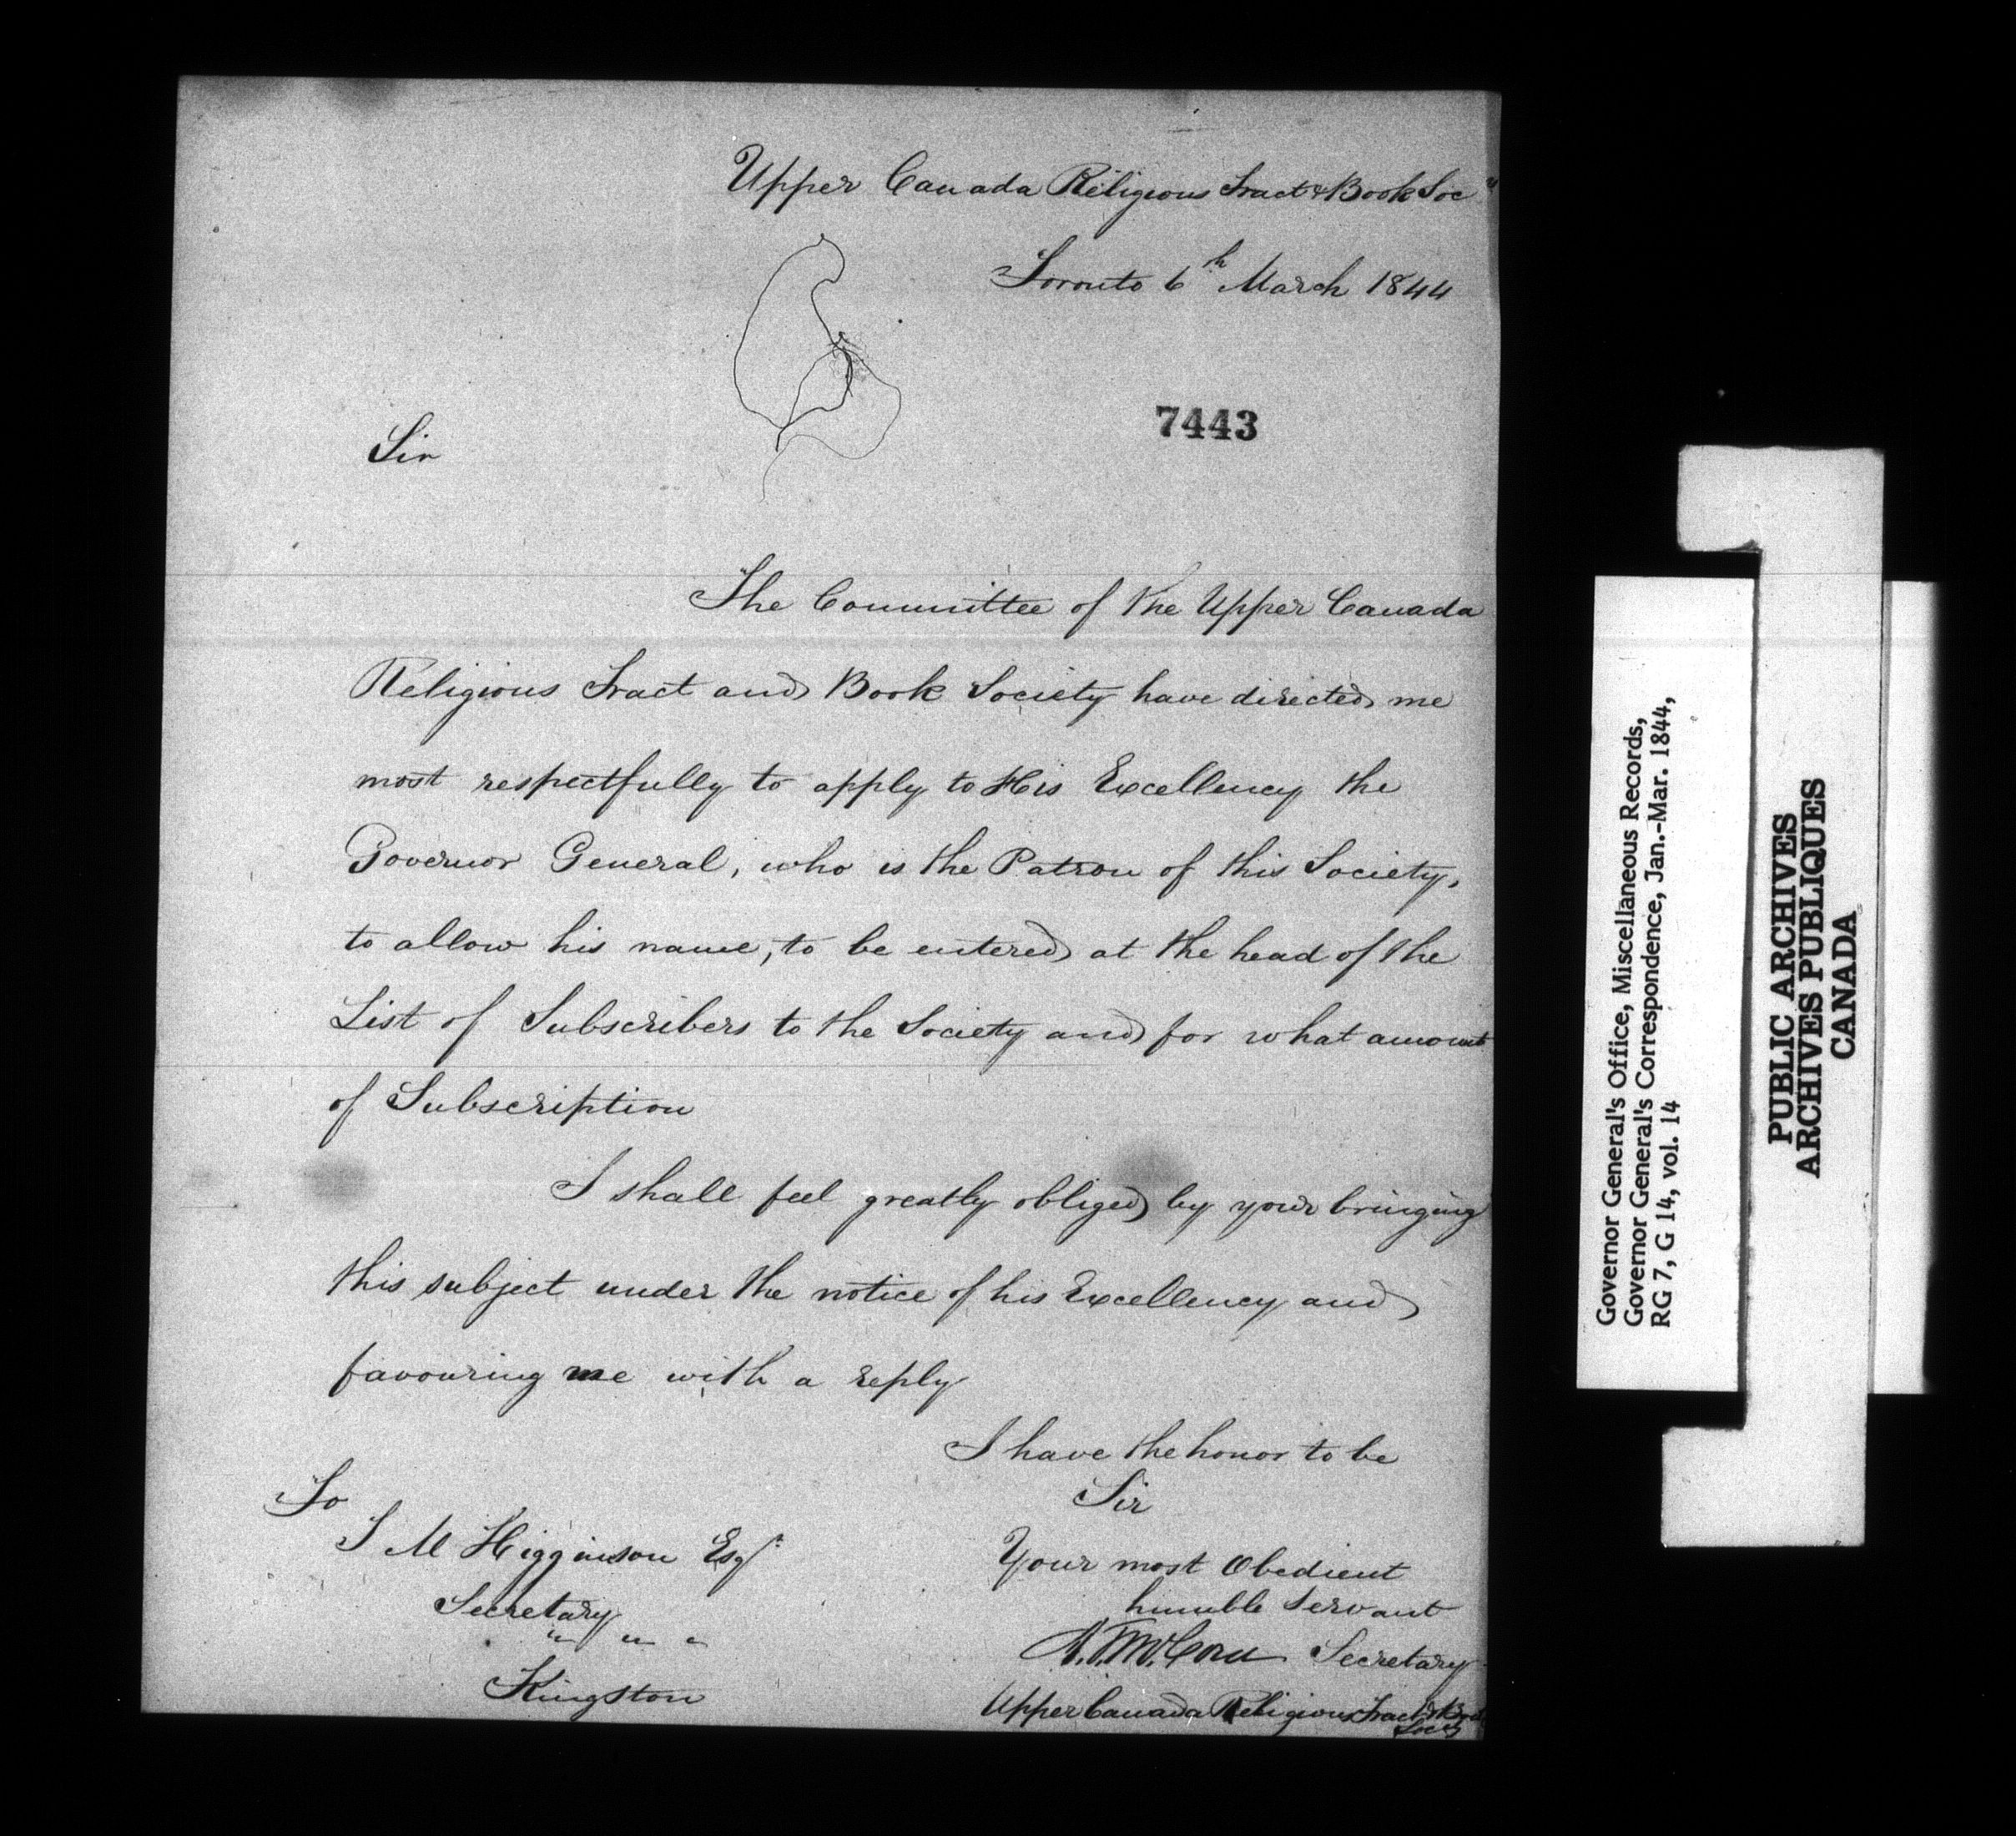 Upper Canada Religious Tract & Book Soc
Toronto 6th March 1844
7443
Sir
The Committee of the Upper Canada
Religious Tract and Book Society have directed me
most respectfully to apply to His Excellency the
Governor General, who is the Patron of this Society,
to allow his name, to be entered at the head of the
List of Subscribers to the Society and for what amount
of Subscription
I shall feel greatly obliged by your bringing
this subject under the notice of his Excellency and
favouring me with a reply
I have the honor to be
Sir
Your most Obedient
humble Servant
Secretary
Upper Canada Religious Tract & Book
Society
To
J M Higginson Esqr
Secretary
" " "
Kingston
Governor General's Office, Miscellaneous Records,
Governor General's Correspondence, Jan.-Mar. 1844,
RG 7, G 14, vol. 14
PUBLIC ARCHIVES
ARCHIVES PUBLIQUES
CANADA